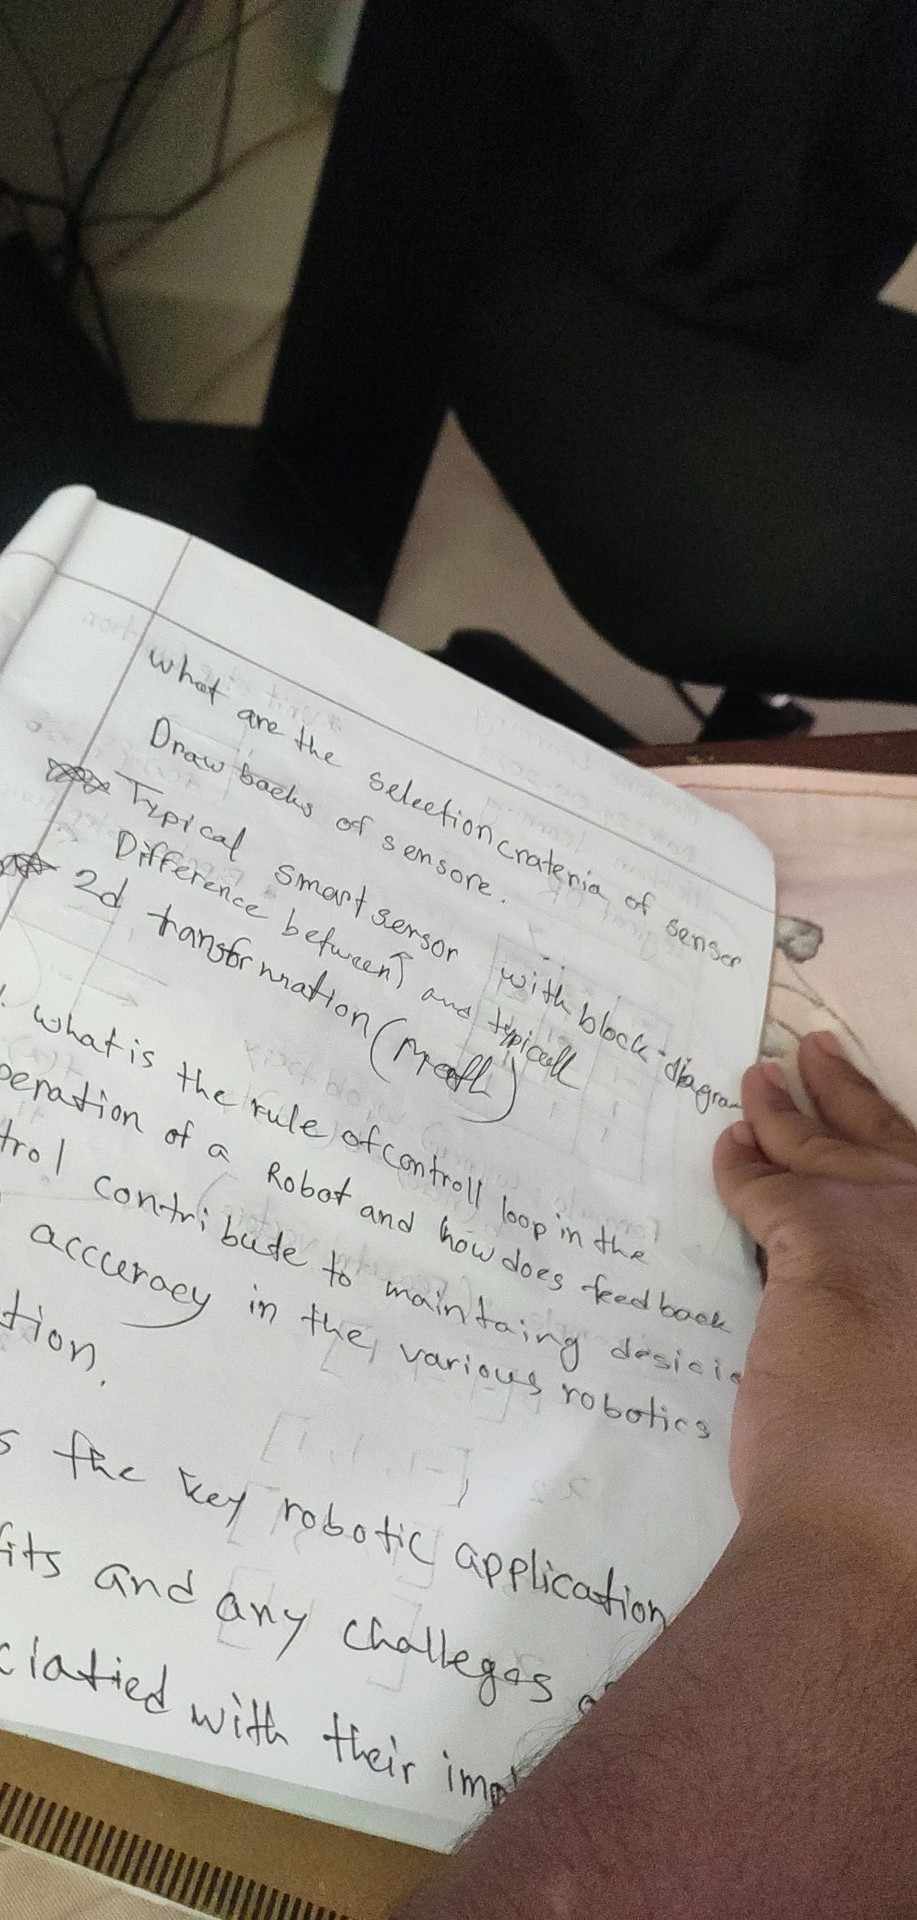 what are the selection crateria of senser
Draw backs of sensore.
Typical smart sensor with block-diagram
Difference between and typicall
2d transformation (Math)
what is the rule of controll loop in the
peration of a Robot and how does feedback
trol contribute to maintaing desicio
accuracy in the various robotics
tion.
s the key robotic application
fits and any challeges
ciatied with their imp